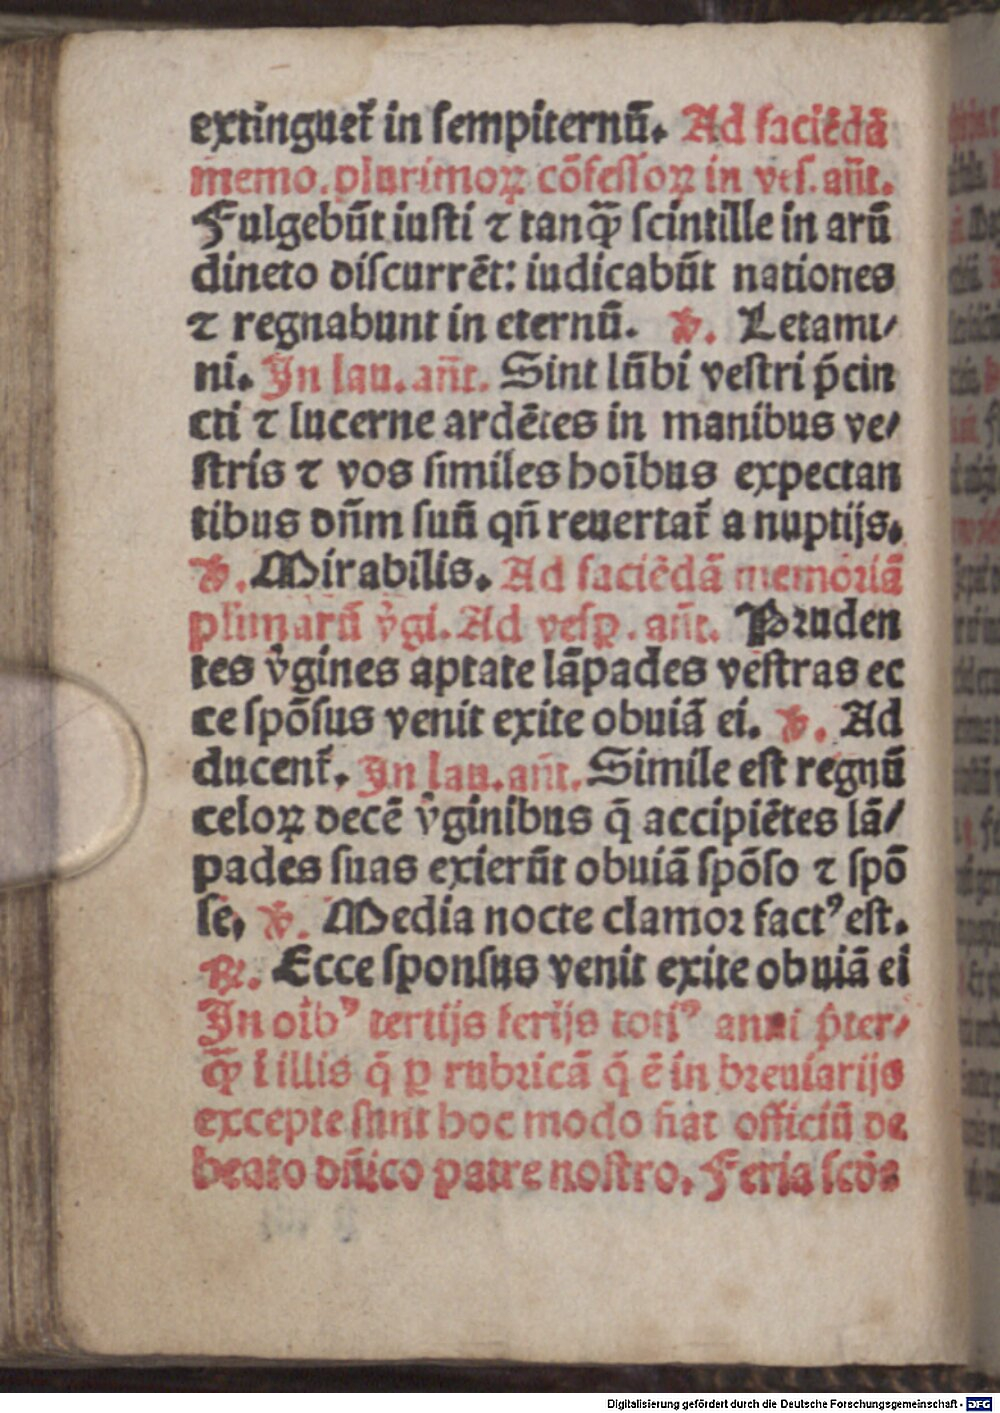 extinguet᷑ in sempiternū. Ad faciēdā
memo. plurimoꝝ cōfessoꝝ in ves. añt.
Fulgebūt iusti ⁊ tanꝙ̄ scintille in arū
dineto discurrēt: iudicabūt nationes
⁊ regnabunt in eternū. ꝟ. Letami⸗
ni. In lau. añt. Sint lūbi vestri p̄cin
cti ⁊ lucerne ardētes in manibus ve⸗
stris ⁊ vos similes hoībus expectan
tibus dñm suū qñ reuertat᷑ a nuptijs.
ꝟ. Mirabilis. Ad faciēdā memoriā
plurimarū v̇gi. Ad vesꝑ. añt. Pruden
tes v̇gines aptate lāpades vestras ec
ce spōsus venit exite obuiā ei. ꝟ. Ad
ducent᷑. In lau. añt. Simile est regnū
celoꝝ decē v̇ginibus q̄ accipiētes lā⸗
pades suas exierūt obuiā spōso ⁊ spō
se. ꝟ. Media nocte clamor factꝰ est.
℞. Ecce sponsus venit exite obuiā ei
In oībꝰ tertijs ferijs totiꝰ anni p̄ter⸗
ꝙ̄ ī illis q̄ ꝑ rubricā q̄ ē in breuiarijs
excepte sunt hoc modo fiat officiū de
beato dñico patre nostro. Feria scōa
Digitalisierung gefördert durch die Deutsche Forschungsgemeinschaft - DFG